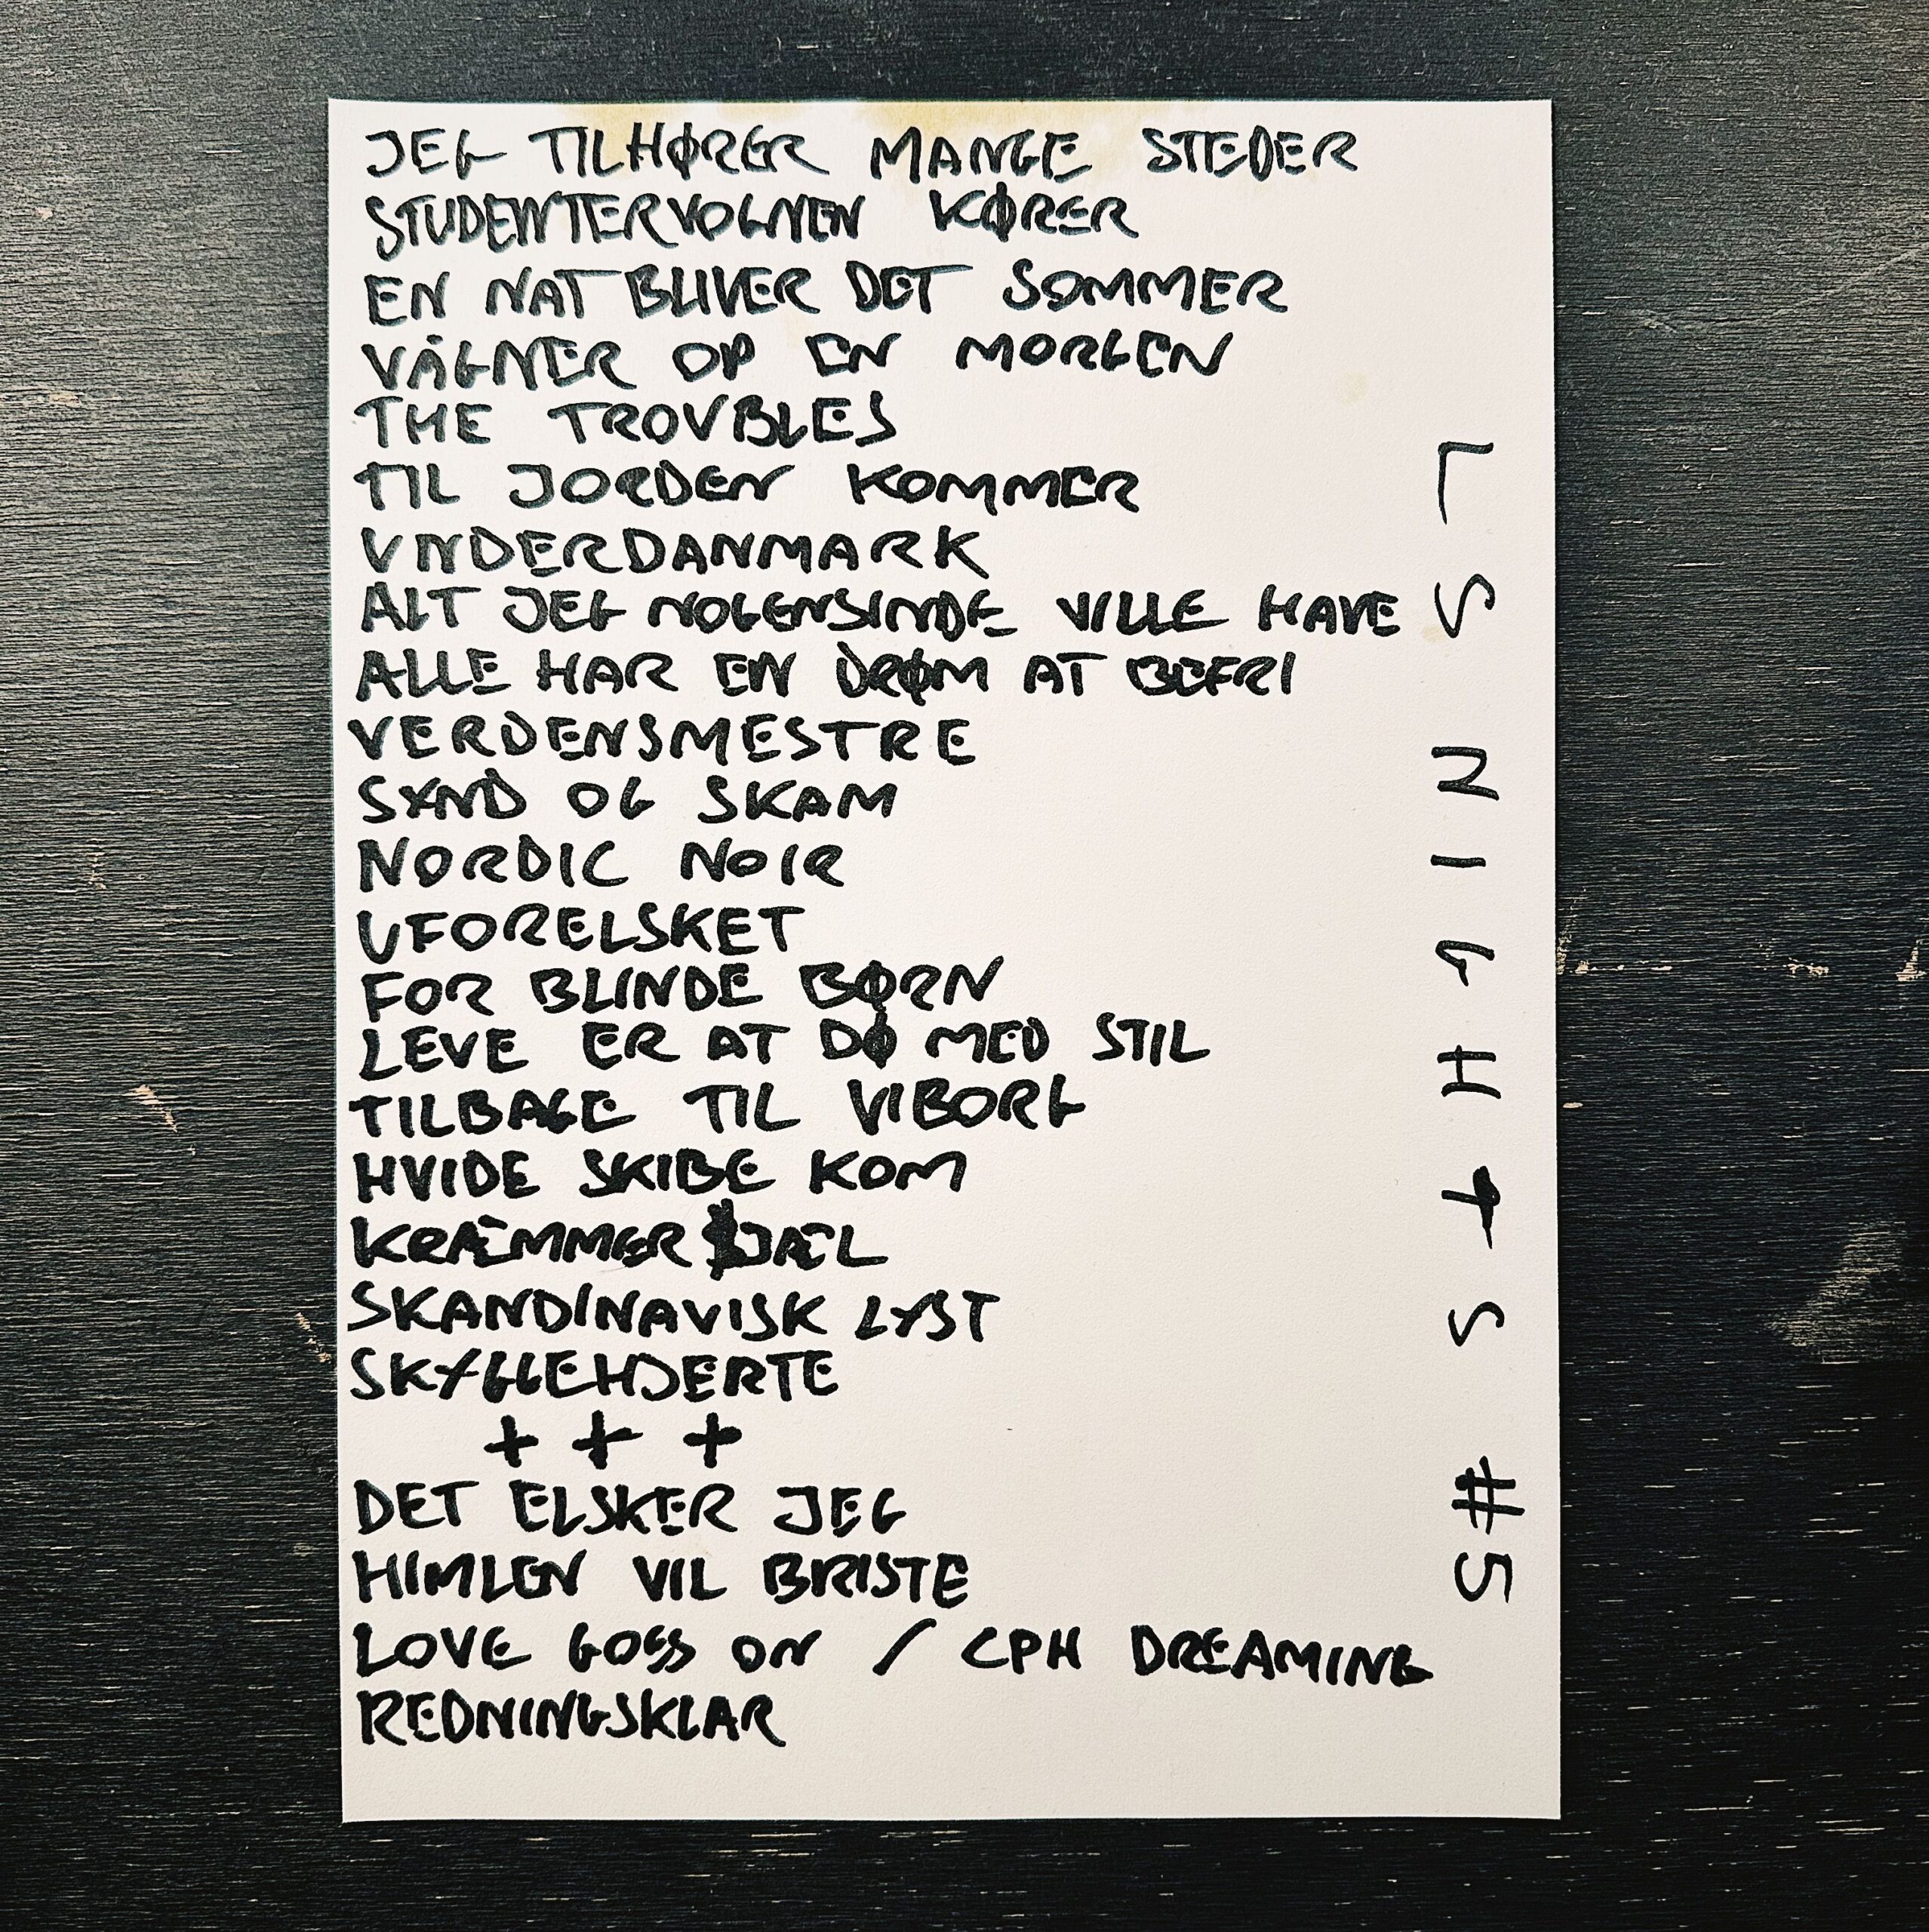 JEG TILHØRER MANGE STEDER
STUDENTERVOGNEN KØRER
EN NAT BLIVER DET SOMMER
VÅGNER OP EN MORGEN
THE TROUBLES
TIL JORDEN KOMMER
UNDERDANMARK
ALT JEG NOGENSINDE VILLE HAVE
ALLE HAR EN DRØM AT BEFRI
VERDENSMESTRE
SYND OG SKAM
NORDIC NOIR
UFORELSKET
FOR BLINDE BØRN
LEVE ER AT DØ MED STIL
TILBAGE TIL VIBORG
HVIDE SKIBE KOM
KRÆMMERSJÆL
SKANDINAVISK LYST
SKYGGEHJERTE
+ + +
DET ELSKER JEG
HIMLEN VIL BRISTE
LOVE GOES ON / CPH DREAMING
REDNINGSKLAR
LS NIGHTS #5